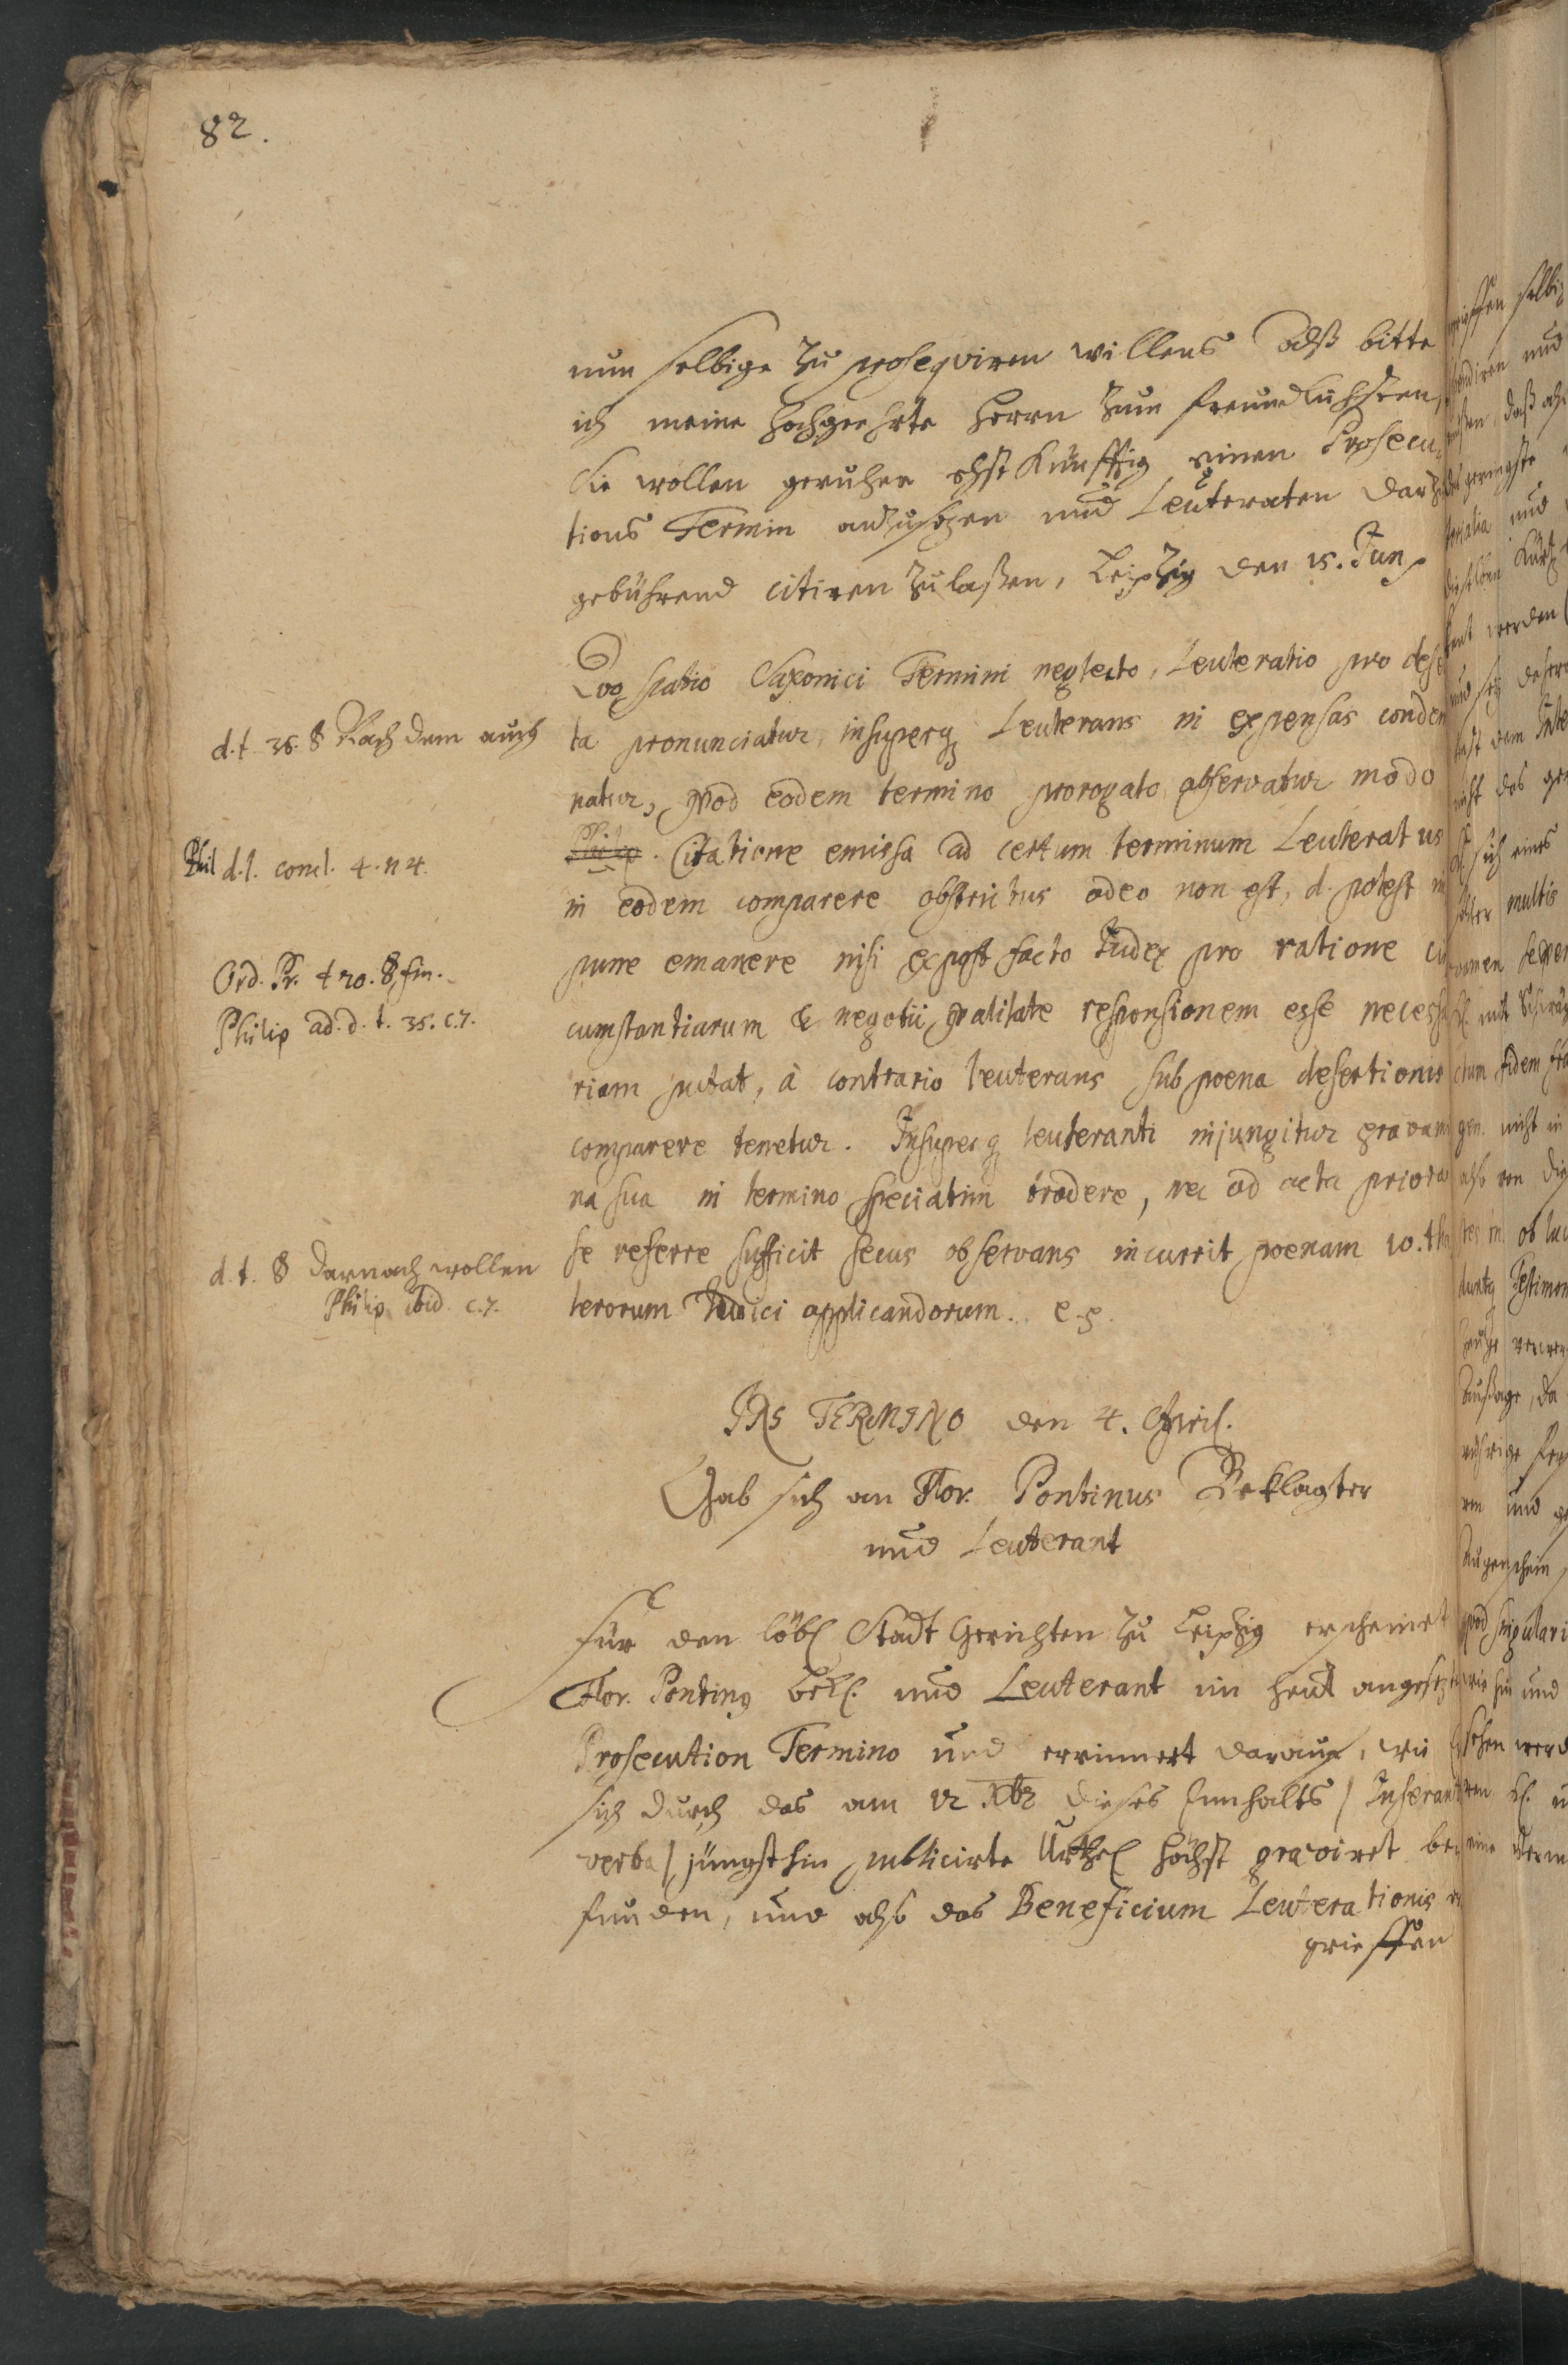 82.
nun selbige zu prosequiren willens Alß bitte
ich meine hochgeehrte Herrn zum freundlichsten,
Sie wollen geruhen ehst künfftig einen Prosecu-
tions Termin anzusezen und Leuteraten darzu
gebührend citiren zu laßen, Leipzig den 15. Jun.
Quo spatio Saxonici Termini neglecto, Leuteratio pro deser
d. t. 35. § Nach dem auch
ta pronunciatur, insuperq Leuterans in expensas condem
natur, quod eodem termino prorogato observatur modo
Phil d. l. concl. 4. n 4.
Philip. Citatione emissa ad certum terminum Leuteratus
in eodem comparere obstrictus adeo non est, d. potest im
Ord. Pr. t 20. § fin.
pune emanere nisi ex post facto Judex pro ratione cir
Philip ad. d. t. 35. c. 7.
cumstantiarum & negotii qvalitate responsionem esse necessa
riam putat, à contrario leuterans sub poena desertionis
comparere tenetur. Insuperq leuteranti injungitur gravami
na sua in termino speciatim tradere, nec ad acta priora
se referre sufficit secus observans incurrit poenam 10. tha
d. t. § Darnach wollen
Philip ibid. c. 7.
lerorum Judici applicandorum. e. g.
INS TERMINO den 4. April.
Gab sich an Flor. Pontinus Beklagter
und Leuterant
Für den löbl Stadt Gerichten zu Leipzig erscheinet
Flor. Pontinq Bekl. und Leuterant im heut angesezten
Prosecution Termino und errinnert darauf, wie Er
sich durch das am 12 Xbr dieses Innhalts / Inserantur
verba / jüngsthin publicirte Urthel höchst graviret be-
funden, und also das Beneficium Leuterationis er
grieffen